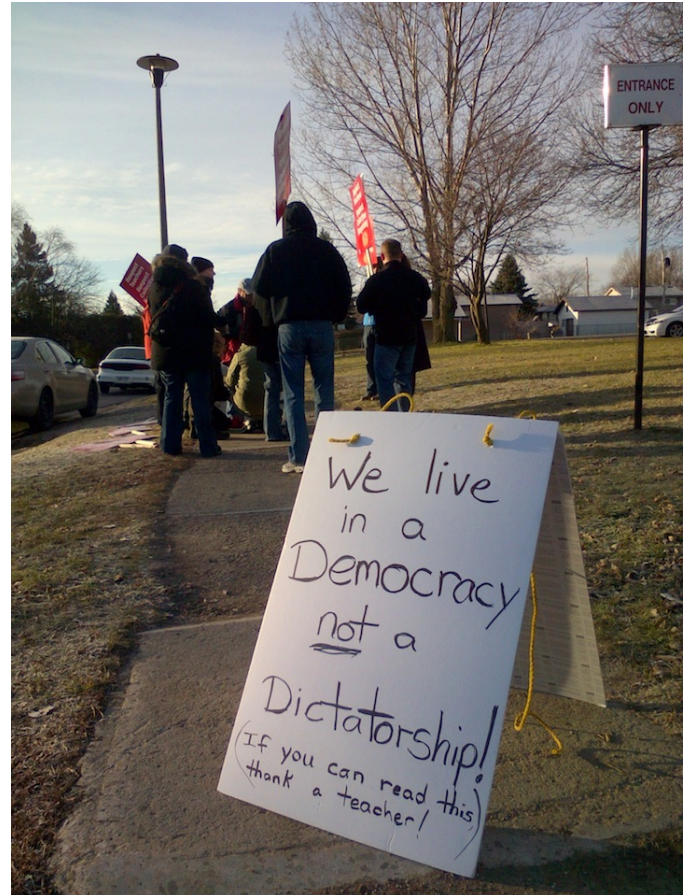 ENTRANCE
ONLY
We live
in a
Democracy
not a
Dictatorship!
(If you can read this,
thank a teacher!)